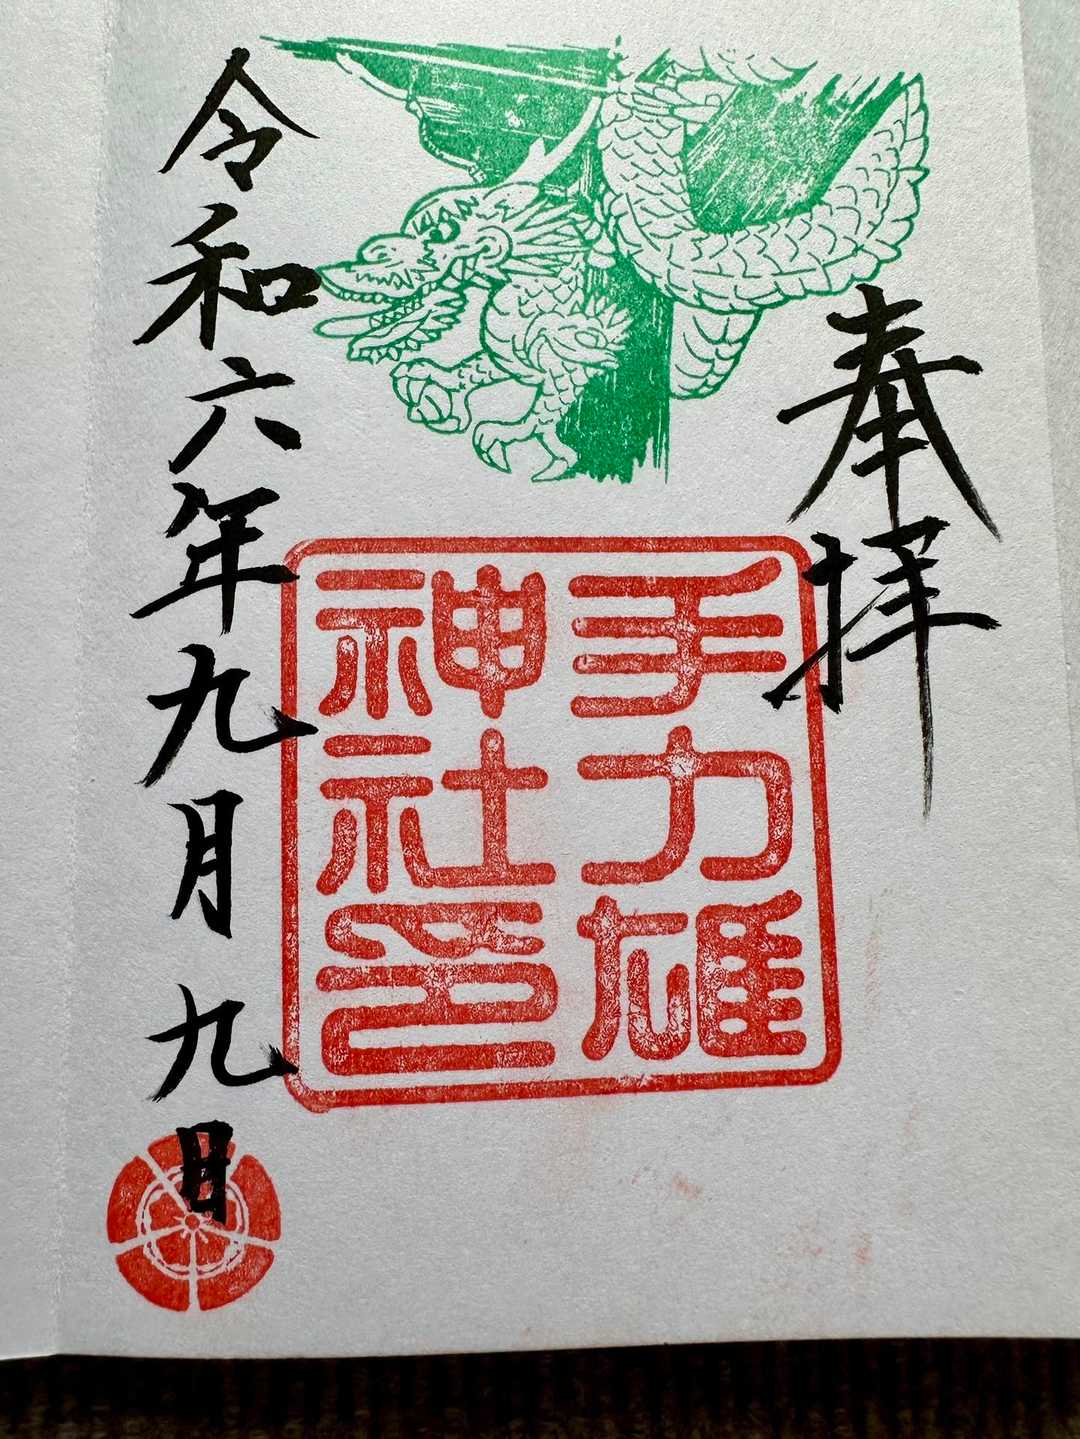 奉拝
手力雄
神社印
令和六年九月九日